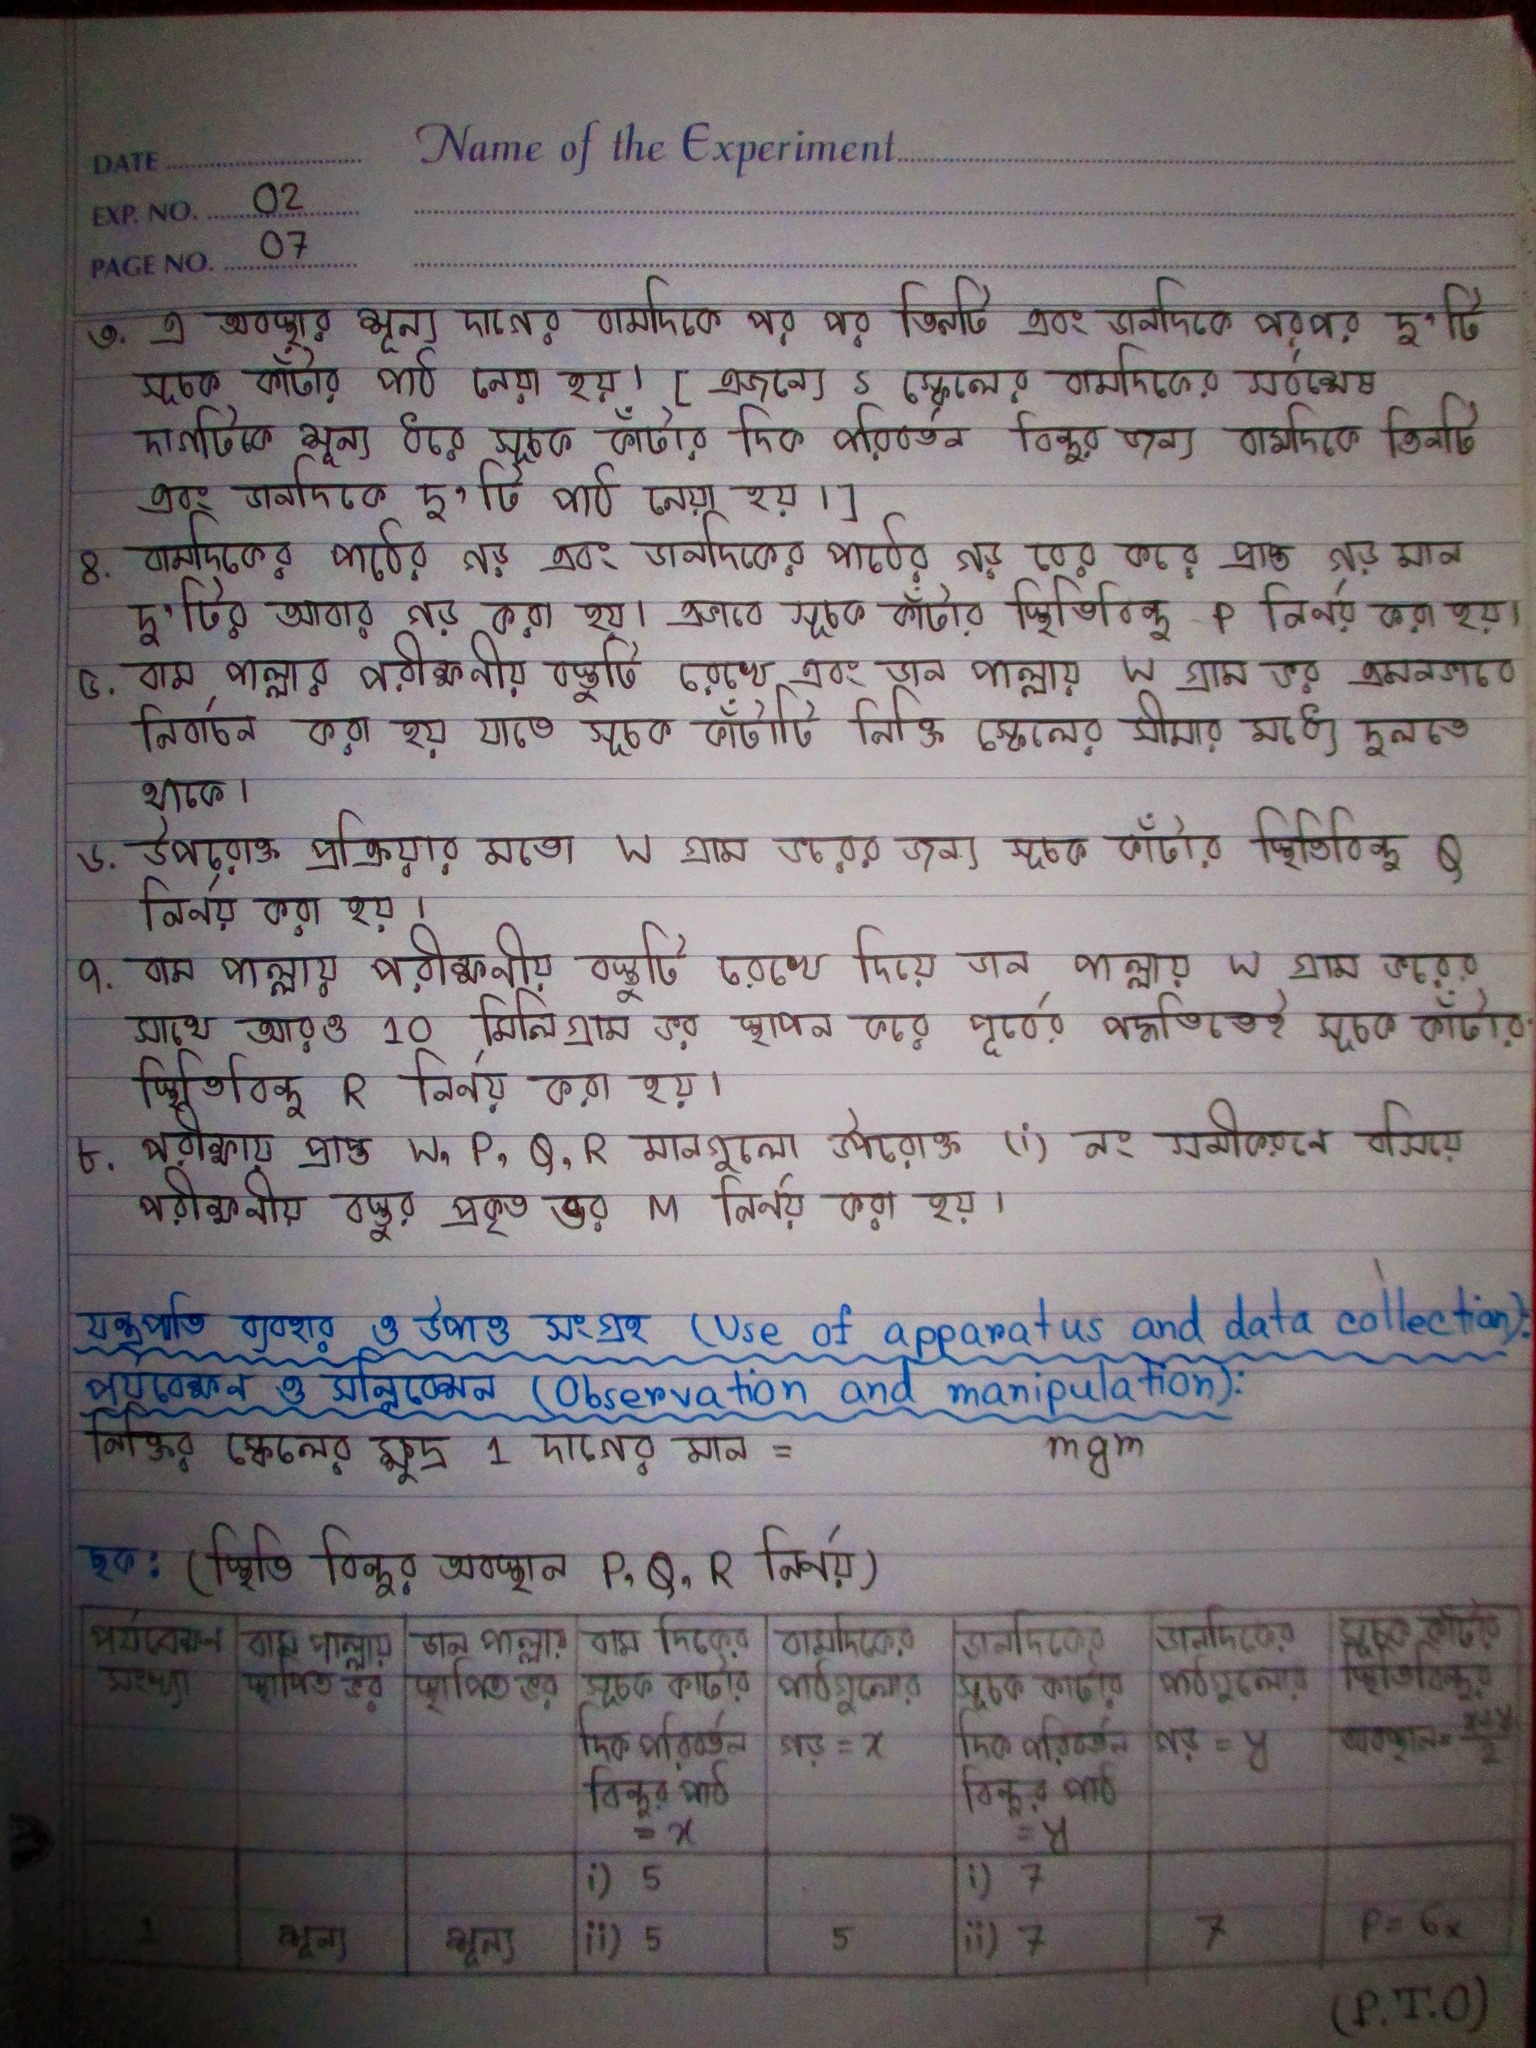 Name of the Experiment
DATE
EXP. NO. 02
PAGE NO. 07
৩. এ অবস্থার শূন্য দাগের বামদিকে পর পর তিনটি এবং ডানদিকে পরপর দু'টি
সূচক কাঁটার পাঠ নেয়া হয়। [ এজন্যে S স্কেলের বামদিকের সর্বশেষ
দাগটিকে শূন্য ধরে সূচক কাঁটার দিক পরিবর্তন বিন্দুর জন্য বামদিকে তিনটি
এবং ডানদিকে দু'টি পাঠ নেয়া হয়।]
৪. বামদিকের পাঠের গড় এবং ডানদিকের পাঠের গড় বের করে প্রাপ্ত গড় মান
দু'টির আবার গড় করা হয়। এভাবে সূচক কাঁটার স্থিতিবিন্দু P নির্ণয় করা হয়।
৫. বাম পাল্লার পরীক্ষনীয় বস্তুটি রেখে এবং ডান পাল্লায় W গ্রাম ভর এমনভাবে
নির্বাচন করা হয় যাতে সূচক কাঁটাটি নিক্তি স্কেলের সীমার মধ্যে দুলতে
থাকে।
৬. উপরোক্ত প্রক্রিয়ার মতো W গ্রাম ভরের জন্য সূচক কাঁটার স্থিতিবিন্দু Q
নির্ণয় করা হয়।
৭. বাম পাল্লায় পরীক্ষনীয় বস্তুটি রেখে দিয়ে ডান পাল্লায় W গ্রাম ভরের
সাথে আরও 10 মিলিগ্রাম ভর স্থাপন করে পূর্বের পদ্ধতিতেই সূচক কাঁটার
স্থিতিবিন্দু R নির্ণয় করা হয়।
৮. পরীক্ষায় প্রাপ্ত W, P, Q, R মানগুলো উপরোক্ত (i) নং সমীকরনে বসিয়ে
পরীক্ষনীয় বস্তুর প্রকৃত ভর M নির্ণয় করা হয়।
যন্ত্রপাতি ব্যবহার ও উপাত্ত সংগ্রহ (Use of apparatus and data collection):
পর্যবেক্ষন ও সন্নিবেশন (Observation and manipulation):
নিক্তির স্কেলের ক্ষুদ্র 1 দাগের মান = mgm
ছক: (স্থিতি বিন্দুর অবস্থান P, Q, R নির্ণয়)
পর্যবেক্ষন বাম পাল্লায় ডান পাল্লায় বাম দিকের বামদিকের ডানদিকের ডানদিকের সূচক কাঁটার
সংখ্যা স্থাপিত ভর স্থাপিত ভর সূচক কাটার পাঠগুলোর সূচক কাটার পাঠগুলোর স্থিতিবিন্দুর
দিক পরিবর্তন গড় = x দিক পরিবর্তন গড় = y অবস্থান = x+y/2
বিন্দুর পাঠ বিন্দুর পাঠ
= x = y
i) 5 i) 7
1 শূন্য শূন্য ii) 5 5 ii) 7 7 P = 6x
(P.T.O)